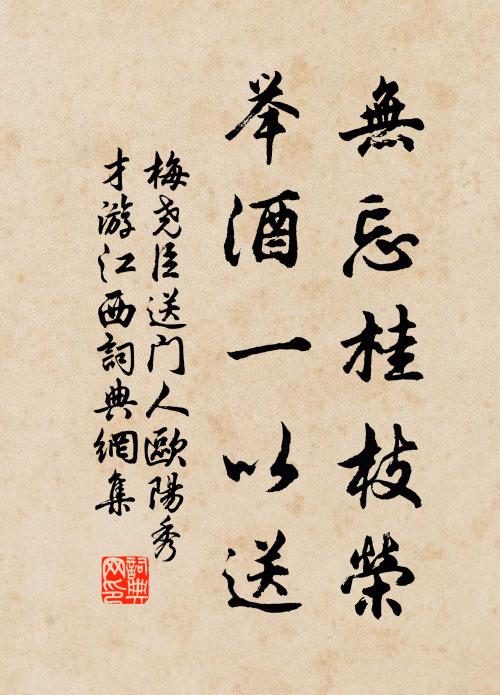 無忘桂枝榮
举酒一以送
梅尧臣送门人歐陽秀
才游江西詞典網集
詞典网印